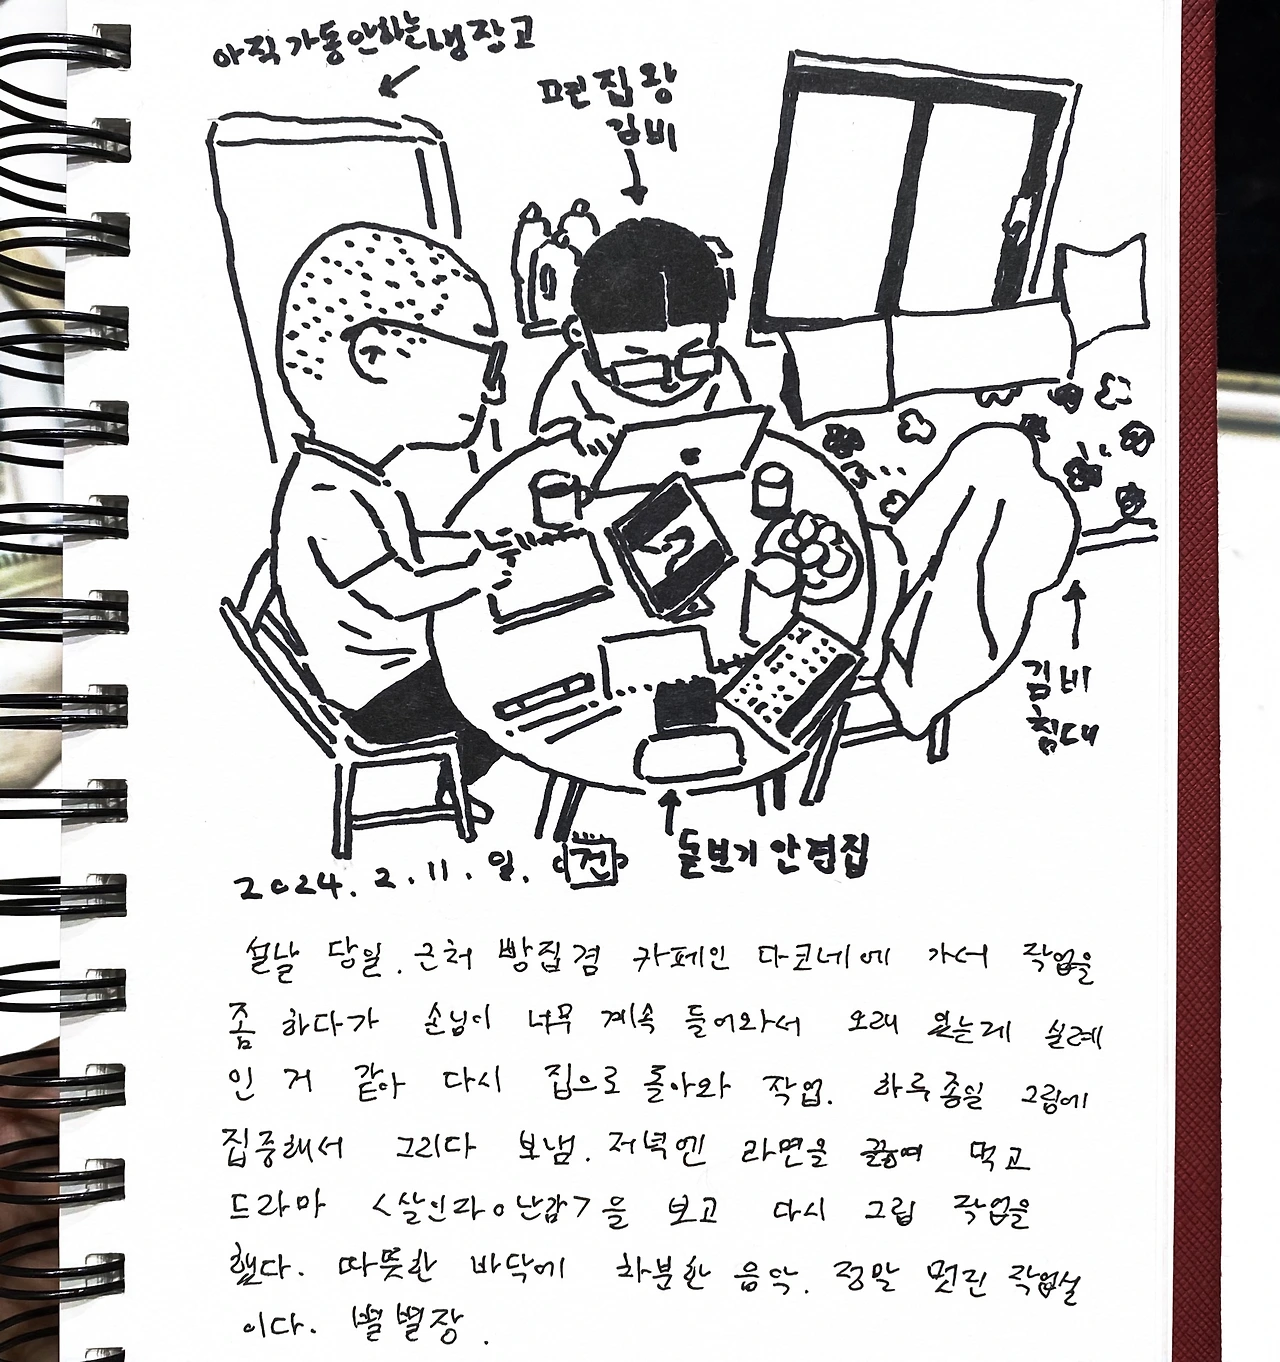 아직 가동 안하는 냉장고
편집왕
김비
김비
침대
돋보기 안경집
2024. 2. 11. 일. 건
설날 당일. 근처 빵집겸 카페인 다코네에 가서 작업을
좀 하다가 손님이 너무 계속 들어와서 오래 있는게 실례
인 거 같아 다시 집으로 돌아와 작업. 하루종일 그림에
집중해서 그리다 보냄. 저녁엔 라면을 끓여 먹고
드라마 <살인자ㅇ난감>을 보고 다시 그림 작업을
했다. 따뜻한 바닥에 차분한 음악. 정말 멋진 작업실
이다. 별별장.